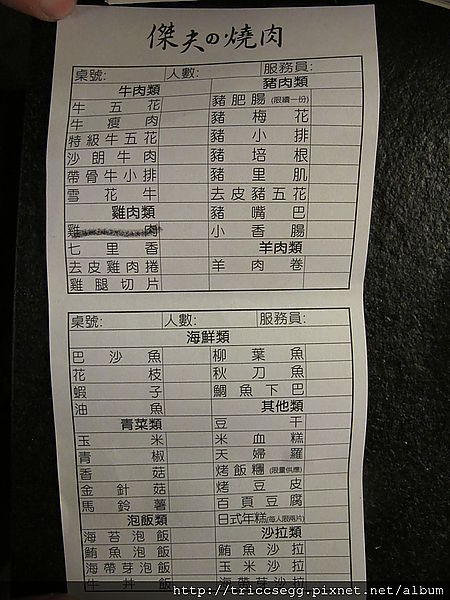 傑夫の燒肉
桌號: 人數: 服務員:
牛肉類 豬肉類
牛五花 豬肥腸(限續一份)
牛瘦肉 豬梅花
特級牛五花 豬小排
沙朗牛肉 豬培根
帶骨牛小排 豬里肌
雪花牛 去皮豬五花
雞肉類 豬嘴巴
雞 肉 小香腸
七里香 羊肉類
去皮雞肉捲 羊肉卷
雞腿切片
桌號: 人數: 服務員:
海鮮類
巴沙魚 柳葉魚
花枝 秋刀魚
蝦子 鯛魚下巴
油魚 其他類
青菜類 豆干
玉米 米血糕
青椒 天婦羅
香菇 烤飯糰(限量供應)
金針菇 烤豆皮
馬鈴薯 百頁豆腐
泡飯類 日式年糕(每人限兩片)
海苔泡飯 沙拉類
鮪魚泡飯 鮪魚沙拉
海帶芽泡飯 玉米沙拉
牛丼飯 海帶芽沙拉
http://triccsegg.pixnet.net/album